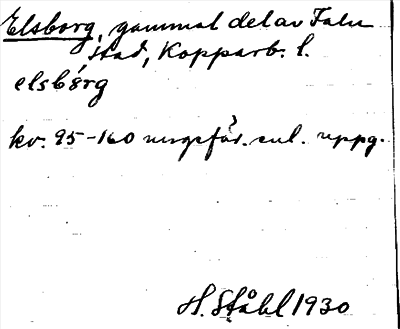 Elsborg, gammal del av Falu
stad, Kopparb. l.
elsbórg
kv. 95-160 ungefär. enl. uppg.
H. Ståhl 1930